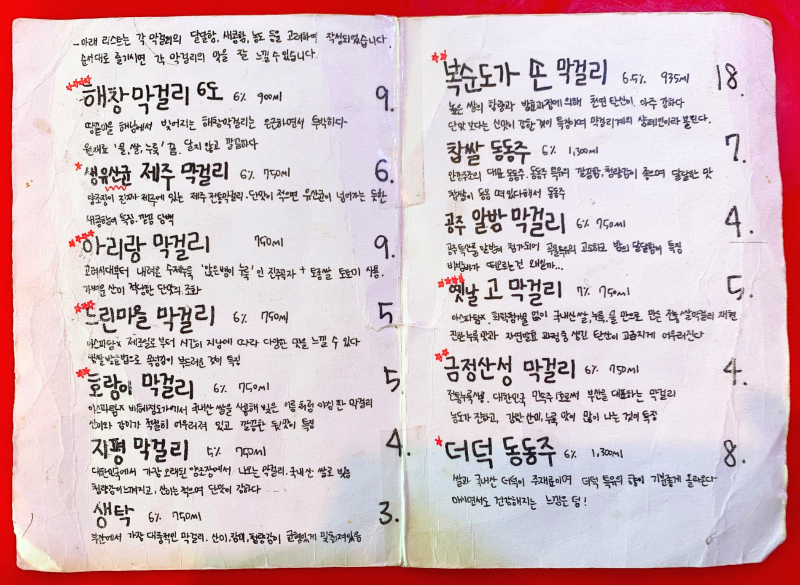 - 아래 리스트는 각 막걸리의 달달함, 새콤함, 농도 등을 고려하여 작성되었습니다.
순서대로 즐기시면 각 막걸리의 맛을 잘 느낄 수 있습니다.
해창 막걸리 6도 6% 900ml 9.
땅끝마을 해남에서 빚어지는 해창막걸리는 둔근하면서 투박하다
원재료 '물, 쌀, 누룩' 끝. 달지 않고 깔끔하다
생유산균 제주 막걸리 6% 750ml 6.
양조장이 진짜 제주에 있는 제주 전통막걸리. 단맛이 적으면 유산균이 넘어가는 듯한
새콤함이 특징. 깔끔 담백
아리랑 막걸리 750ml 9.
고려시대부터 내려온 수제누룩 '앉은뱅이 누룩'인 진주곡자 + 토종쌀 도토미 사용.
가벼운 산미 적당한 단맛의 조화
느린마을 막걸리 6% 750ml 5
아스파탐x 제조일로부터 시간이 지남에 따라 다양한 맛을 느낄 수 있다
생쌀 발효법으로 목넘김이 부드러운 것이 특징
호랑이 막걸리 6% 750ml 5.
아스파탐x 배혜정도가에서 국내산 쌀을 사용해 빚은 이름처럼 야심 찬 막걸리
산미와 감미가 적절히 어우러져 있고 깔끔한 뒷맛이 특징
지평 막걸리 5% 750ml 4.
대한민국에서 가장 오래된 양조장에서 나오는 막걸리. 국내산 쌀로 빚음
청량감이 느껴지고, 산미는 적으며 단맛이 강하다
생탁 6% 750ml 3.
부산에서 가장 대중적인 막걸리. 산미, 감미, 청량감이 균형있게 맞춰져있음
복순도가 손 막걸리 6.5% 935ml 18.
높은 쌀의 함량과 발효과정에 의해 천연 탄산이 아주 강하다
단맛보다는 신맛이 강한 것이 특징이며 막걸리계의 샴페인이라 불린다.
찹쌀 동동주 6% 1,300ml 7.
민간주조의 대표 동동주. 동동주 특유의 깔끔함, 청량감이 좋으며 달달한 맛
찹쌀이 동동 떠 있다해서 동동주
공주 알밤 막걸리 6% 750ml 4.
공주 특산물 알밤이 첨가되어 곡물특유의 고소하고 밤의 달달함이 특징
바밤바가 떠오르는건 왜일까...
옛날 고 막걸리 7% 750ml 5.
아스파탐x, 화학첨가물 없이 국내산 쌀, 누룩, 물 만으로 만든 전통 쌀막걸리 재현
진한 누룩 맛과 자연발효 과정중 생긴 탄산이 고급지게 어우러진다
금정산성 막걸리 6% 750ml 4.
전통누룩사용. 대한민국 민속주1호로써 부산을 대표하는 막걸리
농도가 진하고, 강한 산미, 누룩 맛이 많이 나는 것이 특징
더덕 동동주 6% 1,300ml 8.
쌀과 국내산 더덕이 주재료이며 더덕 특유의 향이 기분좋게 올라온다
마시면서도 건강해지는 느낌은 덤!